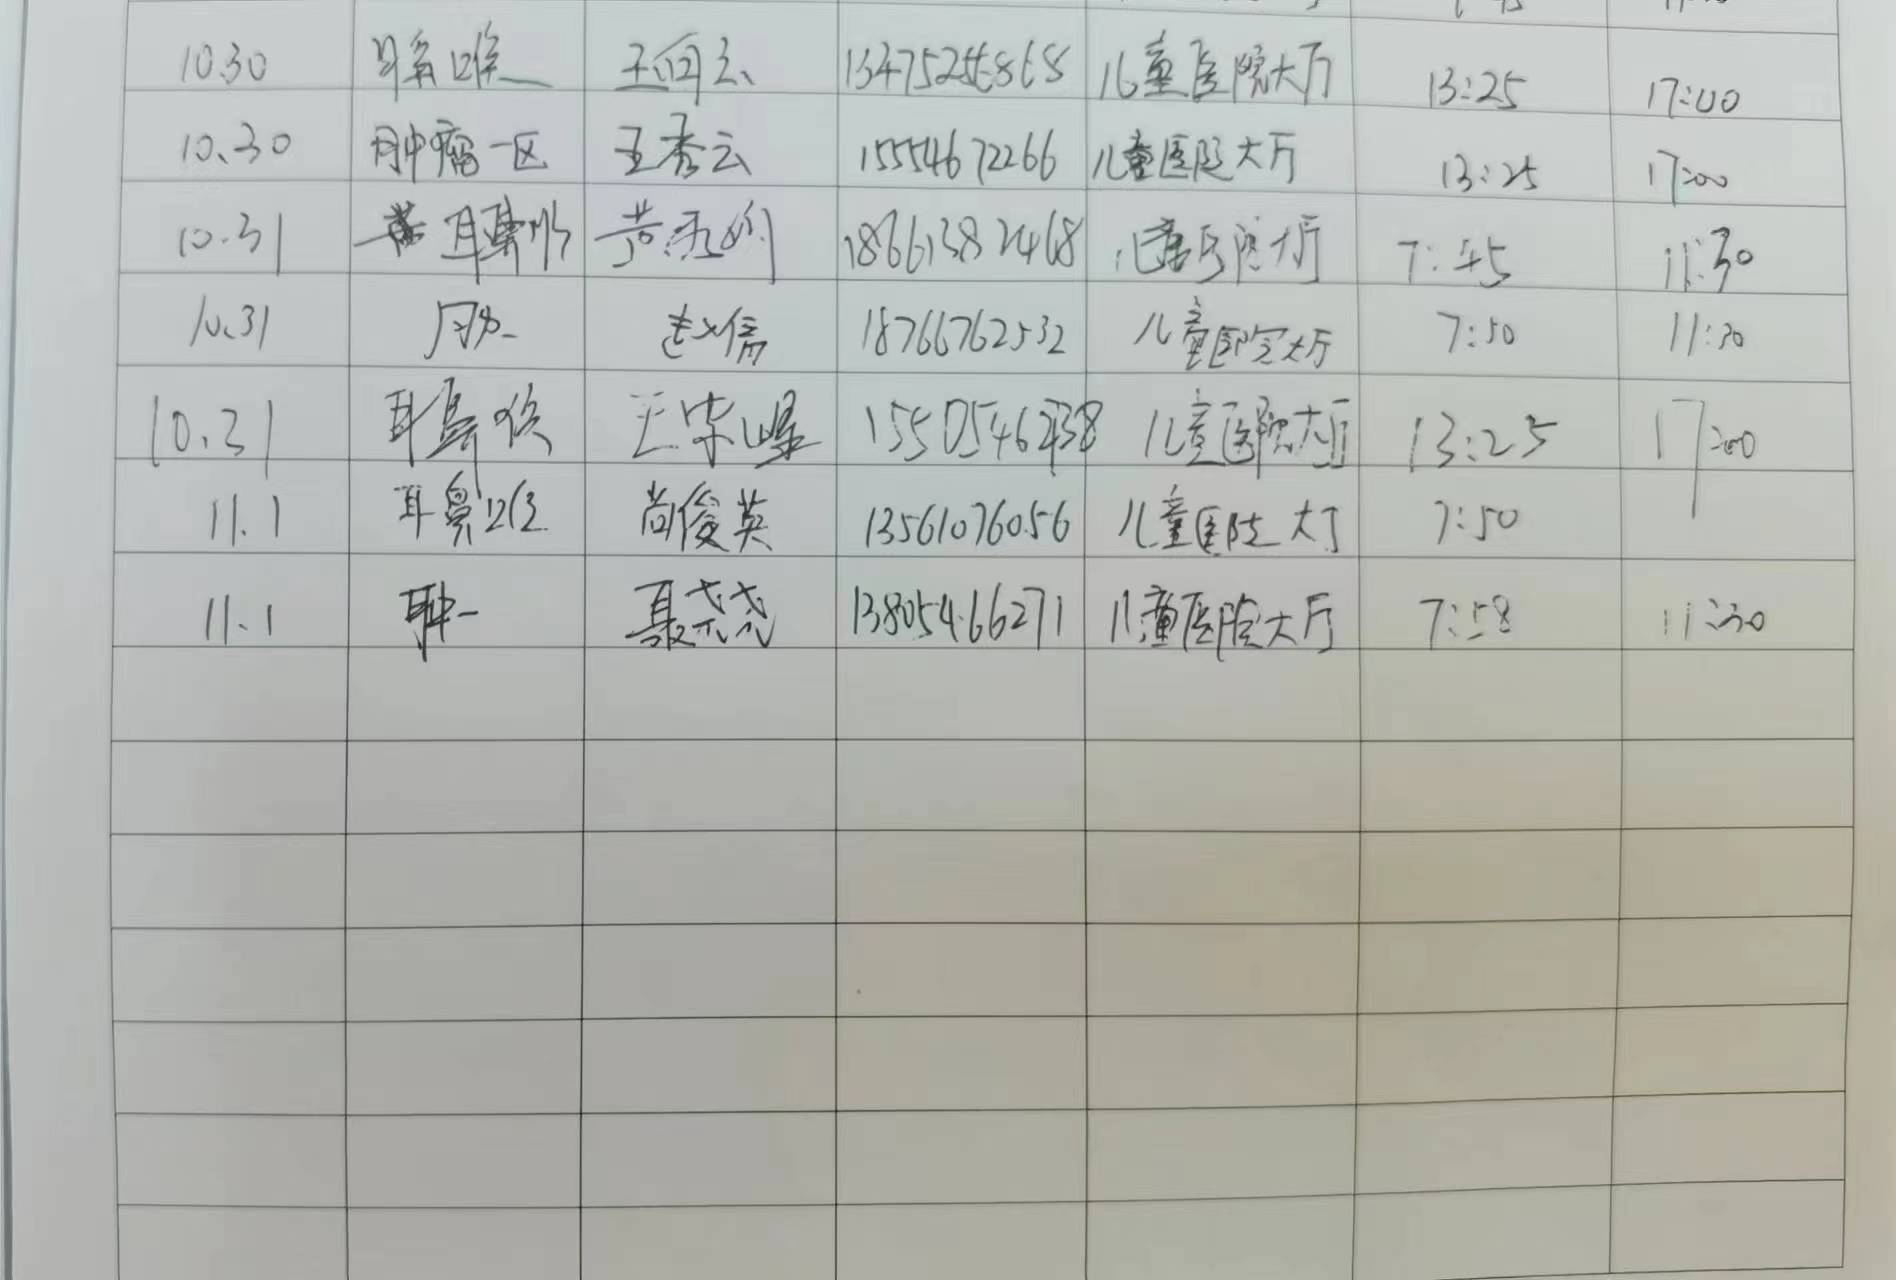 10.30 耳鼻喉 王向云 儿童医院大厅 13:25 17:00
10.30 肿瘤一区 王秀云 15554672266 儿童医院大厅 13:25 17:00
10.31 耳鼻喉 黄 18661382468 儿童医院大厅 7:45 11:30
10.31 赵信 18766762532 儿童医院大厅 7:50 11:30
10.31 耳鼻喉 王 儿童医院大厅 13:25 17:00
11.1 耳鼻喉 尚俊英 13561076056 儿童医院大厅 7:50
11.1 肿一 聂尧尧 13805466271 儿童医院大厅 7:58 11:30